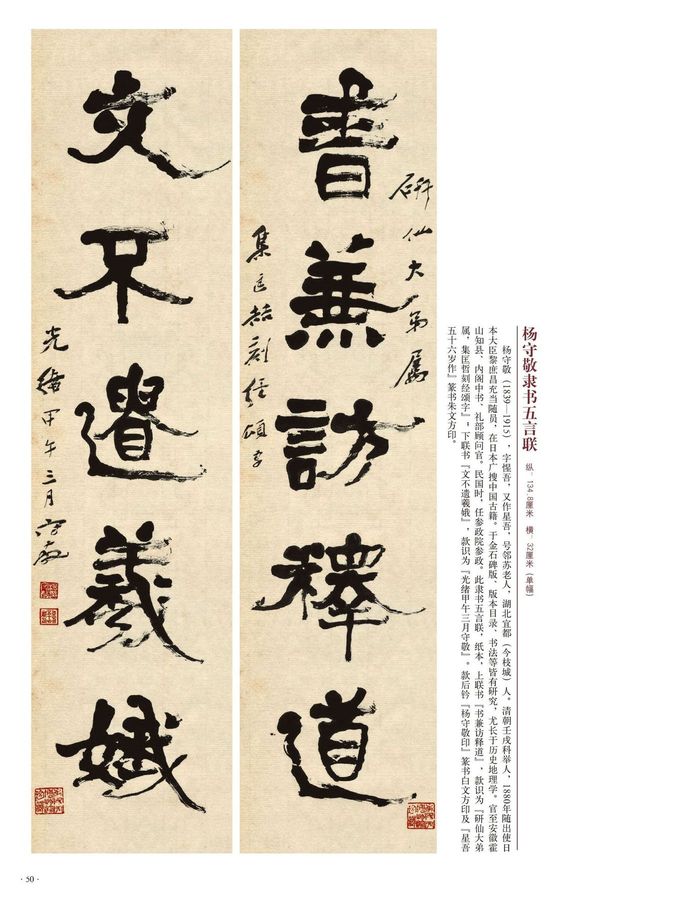 杨守敬隶书五言联
纵 134.8厘米 横 32厘米（单幅）
杨守敬（1839—1915），字惺吾，又作星吾，号邻苏老人，湖北宜都（今枝城）人。清朝壬戌科举人，1880年随出使日
本大臣黎庶昌充当随员，在日本广搜中国古籍。于金石碑版、版本目录、书法等皆有研究，尤长于历史地理学。官至安徽霍
山知县、内阁中书、礼部顾问官。民国时，任参政院参政。此隶书五言联，纸本，上联书『书兼访释道』，款识为『研仙大弟
属，集匡哲刻经颂字』；下联书『文不遗羲娥』，款识为『光绪甲午三月守敬』。款后钤『杨守敬印』篆书白文方印及『星吾
五十六岁作』篆书朱文方印。
研仙大弟属
書兼訪釋道
集匡喆刻经頌字
文不遺羲娥
光緒甲午三月守敬
· 50 ·